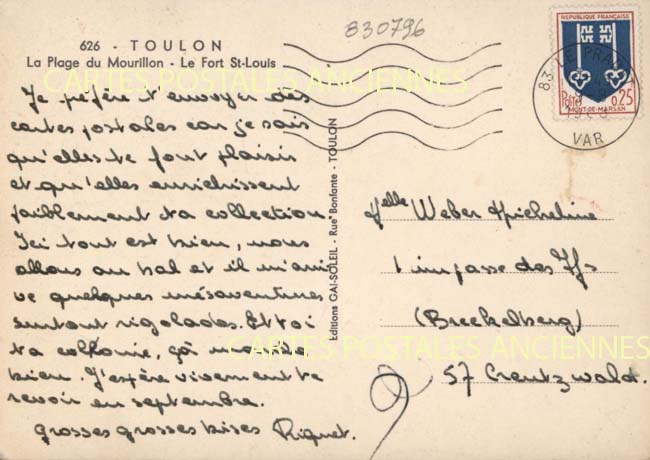 830796
626 - TOULON
La Plage du Mourillon - Le Fort St-Louis
CARTES POSTALES ANCIENNES
Je préfère t'envoyer des
cartes postales car je sais
qu'elles te font plaisir
et qu'elles enrichissent
faiblement ta collection.
Ici tout est bien, nous
allons au bal et il m'arri
ve quelques mésaventures
surtout rigolades. Et toi
ta collonie, çà va
bien. J'espère vivement te
revoir en septembre.
grosses grosses bises Riquet.
CARTES POSTALES ANCIENNES
Editions GAI-SOLEIL - Rue Bonfante - TOULON
REPUBLIQUE FRANÇAISE
Postes 0,25
MONT-DE-MARSAN
83 LE PRADET
VAR
Melle Weber Micheline
1 impasse des Ifs
(Breckelberg)
57 Creutzwald.